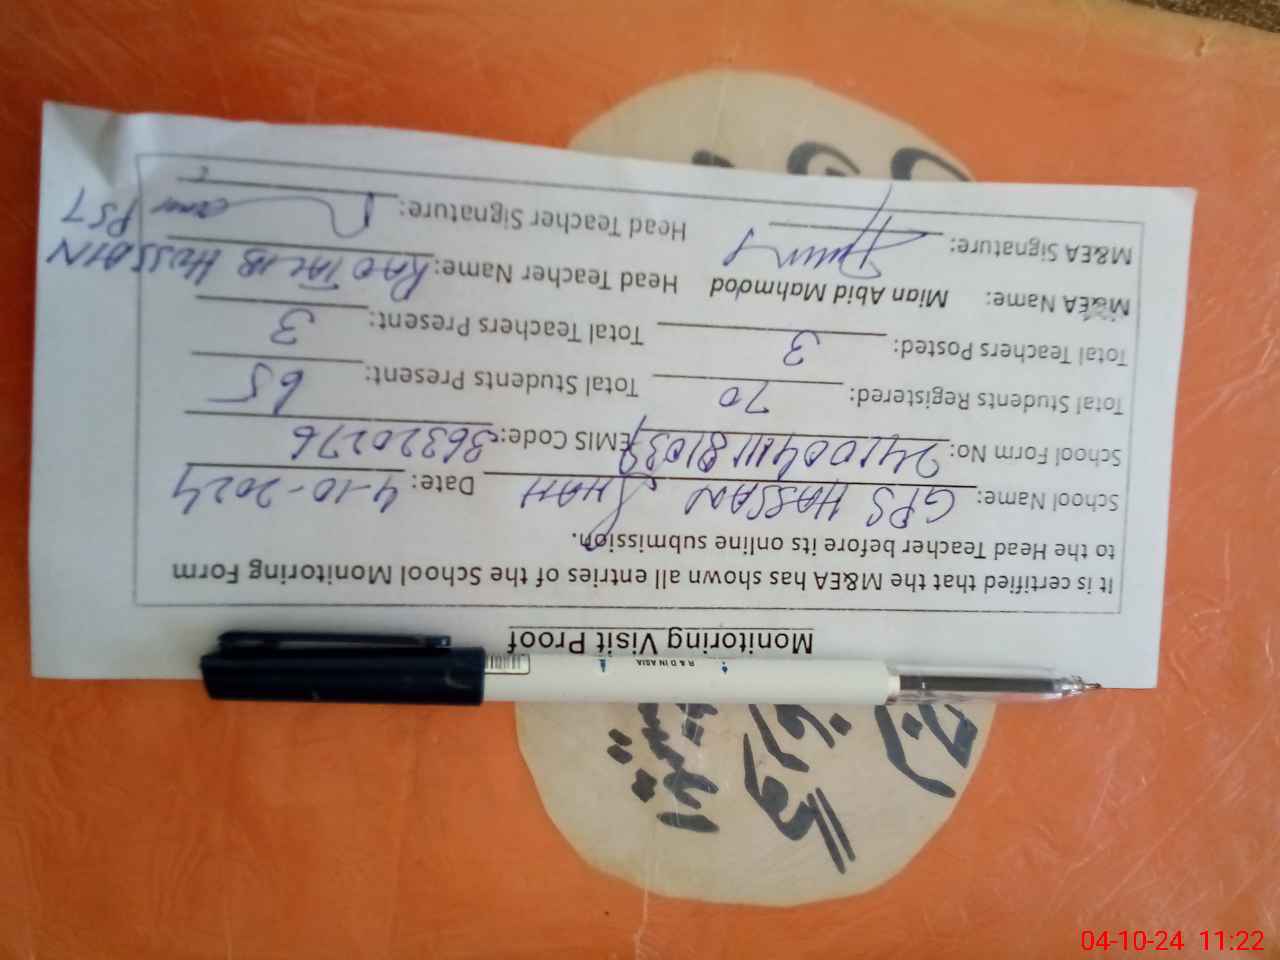 Monitoring Visit Proof
It is certified that the M&EA has shown all entries of the School Monitoring Form
to the Head Teacher before its online submission.
School Name: GPS HASSAN SHAH Date: 4-10-2024
School Form No: EMIS Code: 36320276
Total Students Registered: 70 Total Students Present: 65
Total Teachers Posted: 3 Total Teachers Present: 3
M&EA Name: Mian Abid Mahmood Head Teacher Name: RAO TALIB HUSSAIN
PST
M&EA Signature: Head Teacher Signature:
R & D IN ASIA
04-10-24 11:22